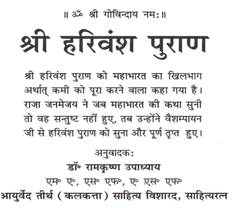 ॥ ॐ श्री गोविन्दाय नमः ॥
श्री हरिवंश पुराण
श्री हरिवंश पुराण को महाभारत का खिलभाग
अर्थात् कमी को पूरा करने वाला कहा गया है।
राजा जनमेजय ने जब महाभारत की कथा सुनी
तो वह सन्तुष्ट नहीं हुए, तब उन्होंने वैशम्पायन
जी से हरिवंश पुराण को सुना और पूर्ण तृप्त हुए।
अनुवादक:
डॉ॰ रामकृष्ण उपाध्याय
एम॰ ए॰, एस॰ एफ॰ ए॰ एस॰ एफ॰
आयुर्वेद तीर्थ (कलकत्ता) साहित्य विशारद, साहित्यरत्न